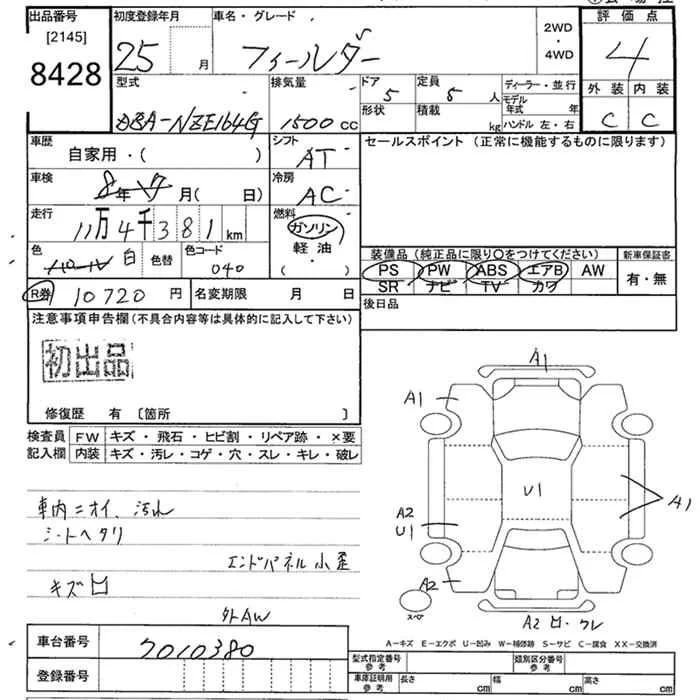 出品番号
[2145]
8428
初度登録年月
25 月
車名・グレード
フィールダー
2WD
・
4WD
評価点
4
外装 内装
C C
型式
DBA-NZE164G
排気量
1500 cc
ドア 5
形状
定員 5 人
積載 kg
ディーラー・並行
モデル年式 年
ハンドル 左・右
車歴
自家用・( )
シフト
AT
セールスポイント (正常に機能するものに限ります)
車検
年 月( 日)
冷房
AC
走行
11万4千381km
燃料
ガソリン
軽油
( )
色
白
色替
色コード
040
装備品 (純正品に限り〇をつけてください)
PS PW ABS エアB AW
SR ナビ TV カワ
新車保証書
有・無
R券 10720 円
名変期限 月 日
後日品
注意事項申告欄(不具合内容等は具体的に記入して下さい)
初出品
修復歴 有 [箇所 ]
検査員 FW キズ・飛石・ヒビ割・リペア跡・×要
記入欄 内装 キズ・汚レ・コゲ・穴・スレ・キレ・破レ
車内ニオイ、汚れ
シートヘタリ
エンドパネル小歪
キズ凹
外AW
A1
A1
U1
A1
A2
U1
A2
スペア
A2 凹・ワレ
A-キズ E-エクボ U-凹み W-補修跡 S-サビ C-腐食 XX-交換済
車台番号 7010380
登録番号
型式指定番号
参考
類別区分番号
参考
車庫証明用
参考
長さ cm 幅 cm 高さ cm